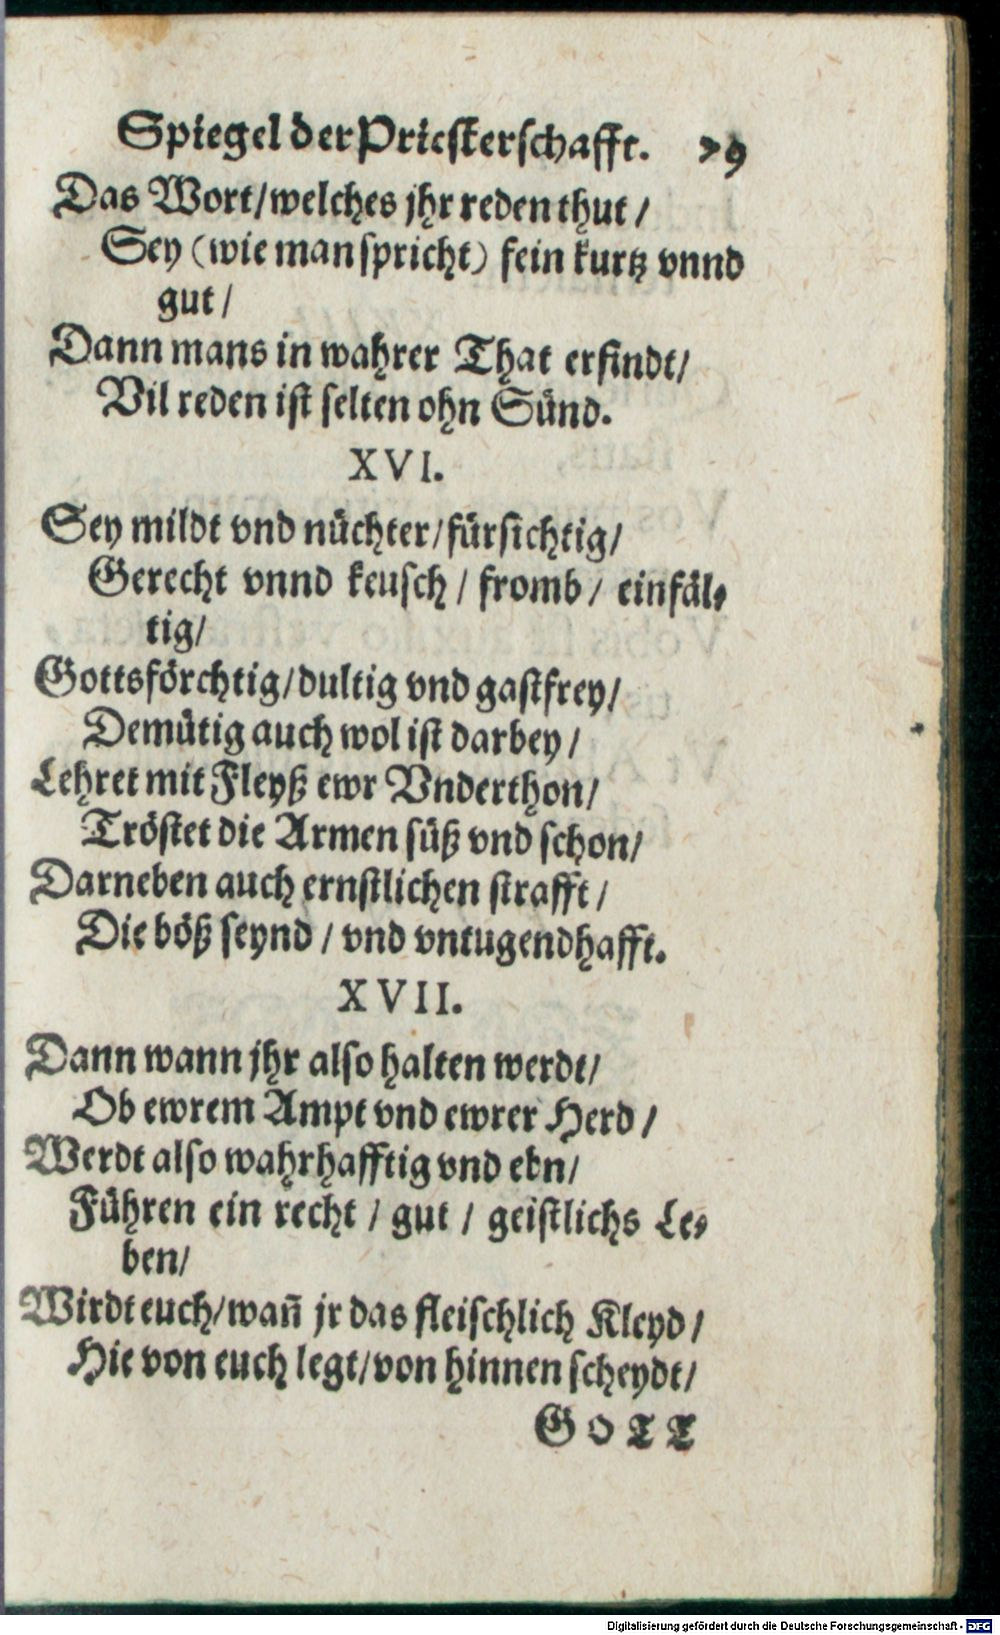 Spiegel der Priesterschafft. 79
Das Wort/welches jhr reden thut/
Sey (wie man spricht) fein kurtz vnnd
gut/
Dann mans in wahrer That erfindt/
Vil reden ist selten ohn Sünd.
XVI.
Sey mildt vnd nüchter/fürsichtig/
Gerecht vnnd keusch/ fromb/ einfäl-
tig/
Gottsförchtig/dultig vnd gastfrey/
Demütig auch wol ist darbey/
Lehret mit Fleyß ewr Vnderthon/
Tröstet die Armen süß vnd schon/
Darneben auch ernstlichen strafft/
Die böß seynd/ vnd vntugendhafft.
XVII.
Dann wann jhr also halten werdt/
Ob ewrem Ampt vnd ewrer Herd/
Werdt also wahrhafftig vnd ebn/
Führen ein recht/ gut/ geistlichs Le-
ben/
Wirdt euch/wañ jr das fleischlich Kleyd/
Hie von euch legt/von hinnen scheydt/
GOTT
Digitalisierung gefördert durch die Deutsche Forschungsgemeinschaft - DFG